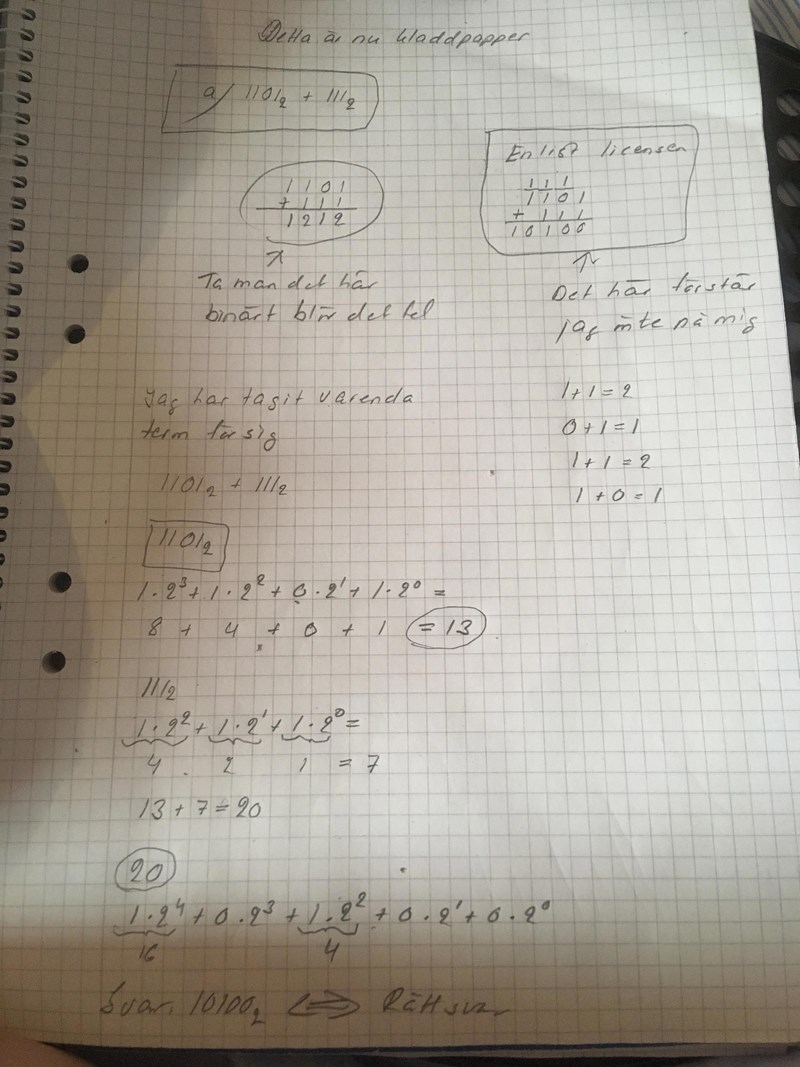 Detta är nu kladdpapper
a) 1101₂ + 111₂
1101
+ 111
1212
Ta man det här
binärt blir det fel
Enligt licensen
111
1101
+ 111
10100
Det här förstår
jag inte på mig
Jag har tagit varenda
term för sig
1101₂ + 111₂
1+1=2
0+1=1
1+1=2
1+0=1
1101₂
1·2³+1·2²+0·2¹+1·2⁰=
8 + 4 + 0 + 1 = 13
111₂
1·2²+1·2¹+1·2⁰=
4 2 1 = 7
13+7=20
20
1·2⁴+0·2³+1·2²+0·2¹+0·2⁰
16 4
Svar: 10100₂ ⟺ Rätt svar